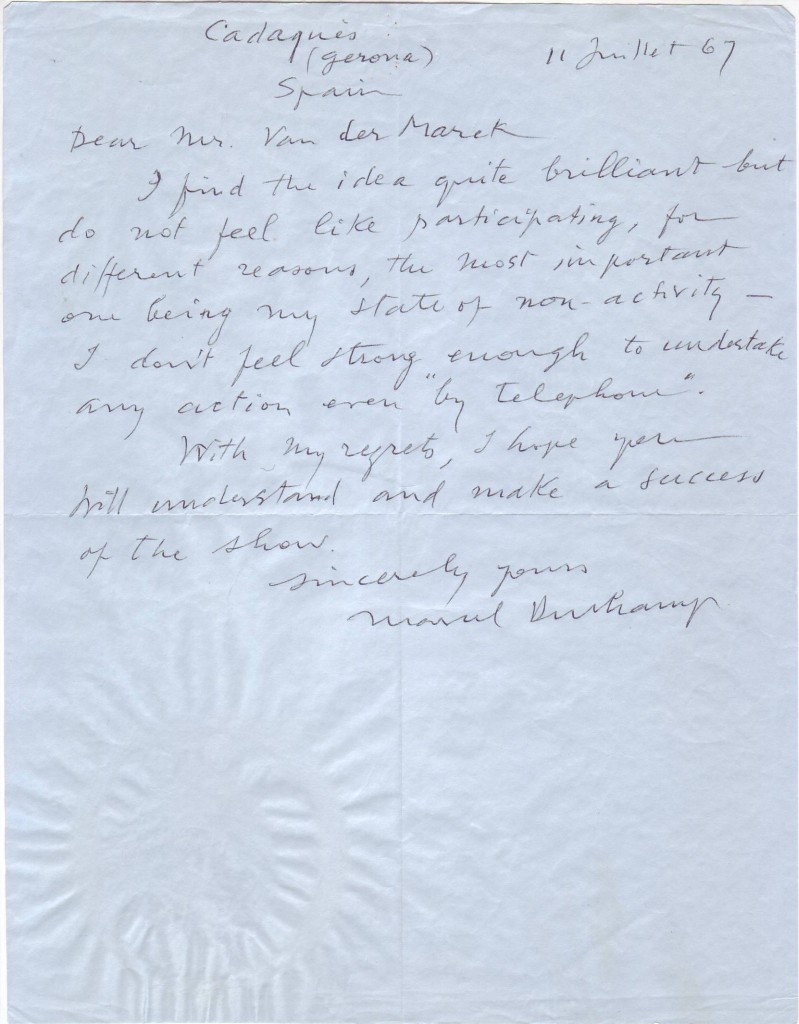 Cadaquès
(Gerona)
Spain
11 Juillet 67
Dear Mr. Van der Marck
I find the idea quite brilliant but
do not feel like participating, for
different reasons, the most important
one being my state of non-activity –
I don't feel strong enough to undertake
any action even "by telephone".
With my regrets, I hope you
will understand and make a success
of the show.
Sincerely yours
Marcel Duchamp